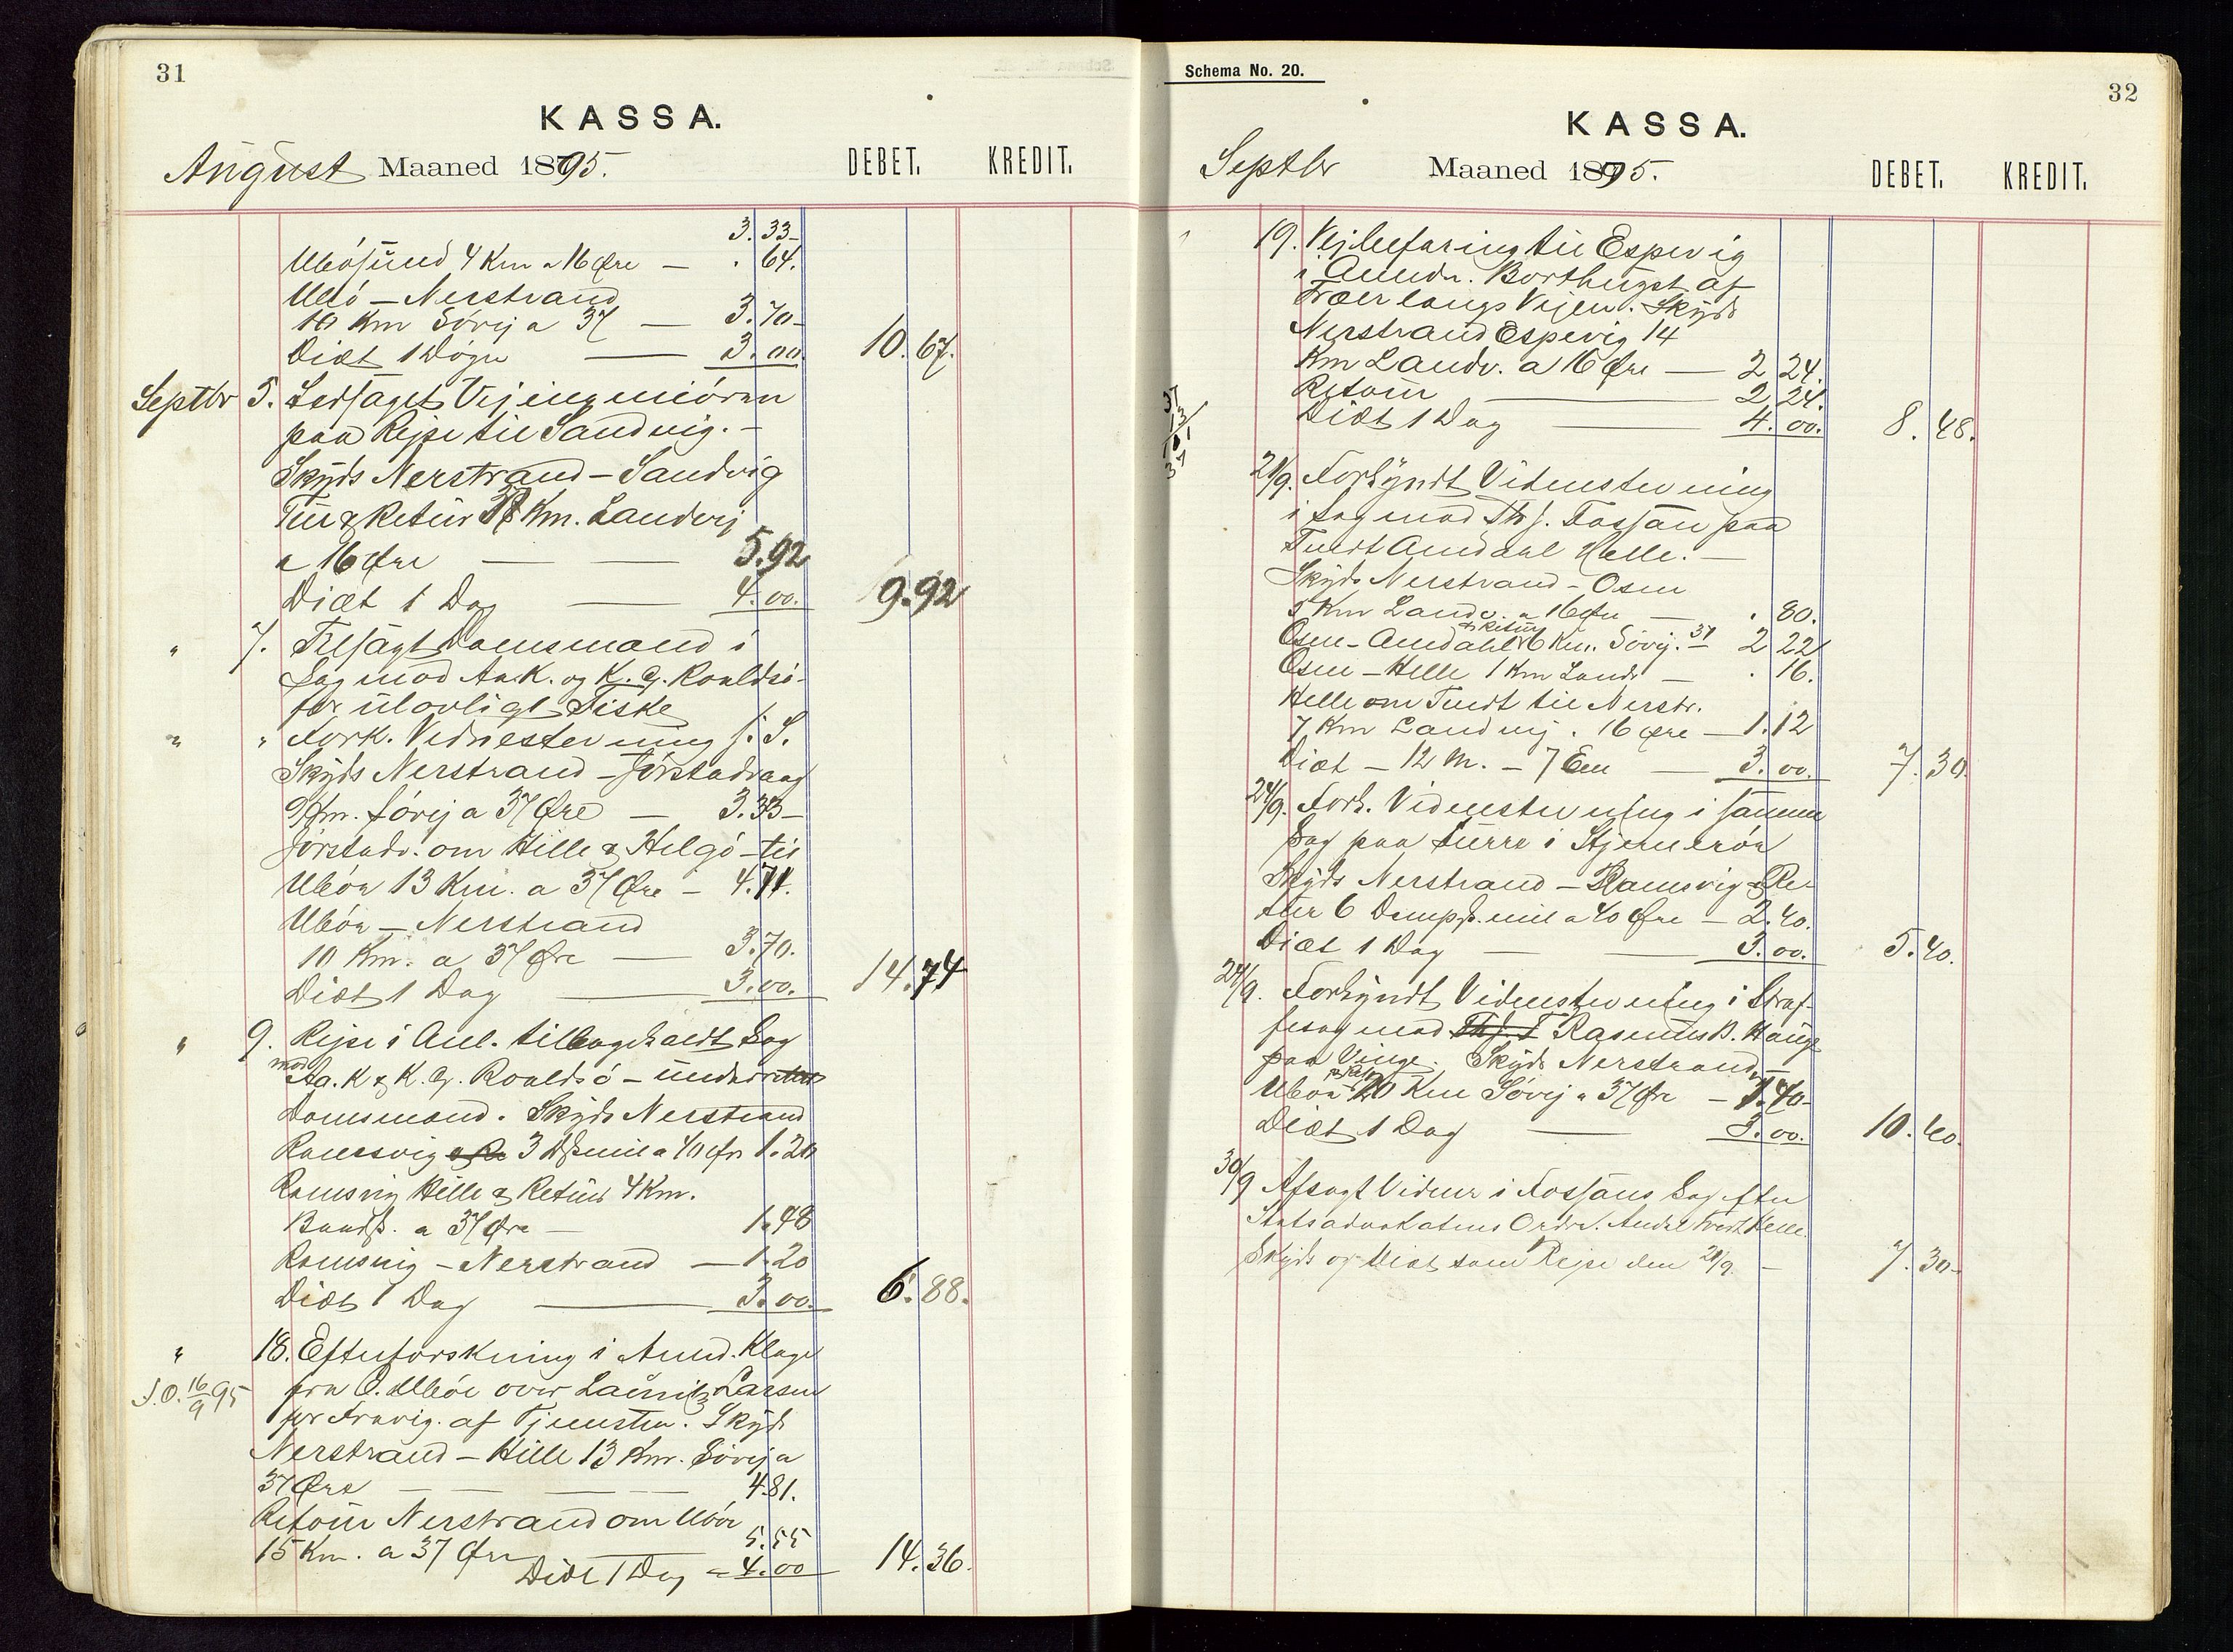 31
KASSA.
August Maaned 1895.
DEBET. KREDIT.
3.33-
Ubösund 4 Km a 16 Øre — . 64.
Ubö — Nerstrand
10 Km Sövej a 37 — 3.70-
Diæt 1 Døgn — 3.00. 10.67.
Septbr 5. Ledsaget Vejingeniören
paa Rejse til Sandvig. -
Skyds Nerstrand - Sandvig
Tur & Retur 37 Km. Landvej
a 16 Øre — — 5.92
Diæt 1 Dag — 4.00. 9.92
" 7. Tilsagt Domsmænd i
Sag mod Aa. K. og K. G. Roaldsö
for ulovligt Fiske
" " Fork. Vidnestevning s. S.
Skyds Nerstrand - Jörstadvaag
9 Km. Søvej a 37 Øre — 3.33-
Jörstadv. om Hille & Helgö til
Uböa 13 Km. a 37 Øre - 4.71.
Uböa - Nerstrand
10 Km. a 37 Øre — 3.70.
Diæt 1 Dag — 3.00. 14.74
" 9. Rejse i Anl. tilbagekaldt Sag
mod Aa. K & K. G. Roaldsö - underrettet
Domsmænd. Skyds Nerstrand
Ramsvig 3 Dsmil a 40 Øre 1.20
Ramsvig Hille & Retur 4 Km.
Baads. a 37 Øre — 1.48
Ramsvig - Nerstrand — 1.20
Diæt 1 Dag — 3.00. 6.88.
" 18. Efterforskning i Anled. Klage
S.O. 16/9 95 fra O. Uböe over Lauritz Larsen
for Fravig. af Tjenesten. Skyds
Nerstrand - Hille 13 Km. Sövej a
37 Øre — — — — 4.81.
Retour Nerstrand om Uböe
15 Km. a 37 Øre — 5.55
Diæt 1 Dag - 4.00 14.36.
Schema No. 20.
32
KASSA.
Septbr Maaned 1895.
DEBET. KREDIT.
19. Vejbefaring til Espevig
i Anledn. Borthugst af
Træer langs Vejen. Skyds
Nerstrand Espevig 14
Km Landv. a 16 Øre — 2 24.
Retour — 2 24.
Diæt 1 Dag — 4.00. 8.48.
37
13/
37
21/9. Forkyndt Vidnestevning
i Sag mod Th. J. Fossan paa
Tveit Amdahl Helle. -
Skyds Nerstrand - Osen
5 Km Landv. a 16 Øre — . 80.
Osen - Amdahl & Retur 6 Km. Sövej. 37 — 2 22
Osen - Helle 1 Km Landv — . 16.
Helle om Tveit til Nerstr.
7 Km Landvej. 16 Øre — 1.12
Diæt - 12 M. - 7 Em — 3.00. 7.30.
24/9. Fork. Vidnestevning i samme
Sag paa i Stjerneröa
Skyds Nerstrand - Ramsvig & Re-
tur 6 Dampsk.mil a 40 Øre - 2.40.
Diæt 1 Dag — 3.00. 5.40.
24/9. Forkyndt Vidnestevning i Straf-
fesag mod Th. J. F Rasmus B. Hauge
paa Vinge. Skyds Nerstrand -
Uböa & Retur 20 Km Søvej a 37 Øre - 7.40-
Diæt 1 Dag — 3.00. 10.40.
30/9 Afsagt Vidner i Fossans Sag efter
Statsadvokatens Ordre. Amdal Tveit Helle.
Skyds og Diæt som Rejse den 21/9. - 7.30-